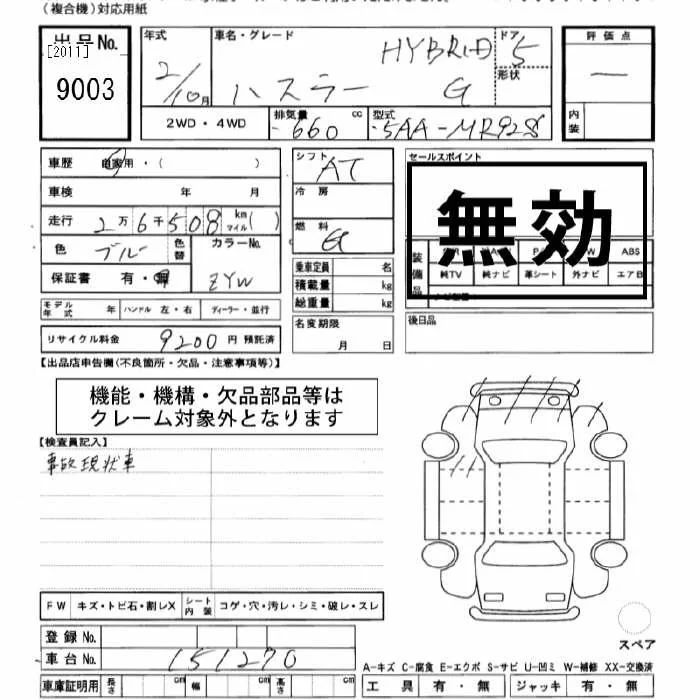 (複合機)対応用紙
出品No.
[2011]
9003
年式
2/10月
車名・グレード
HYBRID
ハスラー G
ドア
5
形状
2WD・4WD
排気量
660
cc
型式
5AA-MR92S
評価点
一
内装
車歴 自家用・( )
車検 年 月
走行 2万6千508 km マイル( )
色 ブルー 色替
カラーNo.
ZYW
保証書 有・無
モデル年式 年 ハンドル 左・右 ディーラー・並行
リサイクル料金 9200 円 預託済
シフト
AT
冷房
燃料
G
乗車定員 名
積載量 kg
総重量 kg
名変期限
月 日
セールスポイント
無効
装備品
ABS
純TV 純ナビ 革シート 外ナビ エアB
後日品
【出品店申告欄(不良箇所・欠品・注意事項等)】
機能・機構・欠品部品等は
クレーム対象外となります
【検査員記入】
事故現状車
FW キズ・トビ石・割レX シート内装 コゲ・穴・汚レ・シミ・破レ・スレ
登録No.
車台No. 151270
車庫証明用 長さ cm 幅 cm 高さ cm
スペア
A-キズ C-腐食 E-エクボ S-サビ U-凹ミ W-補修 XX-交換済
工具 有・無 ジャッキ 有・無